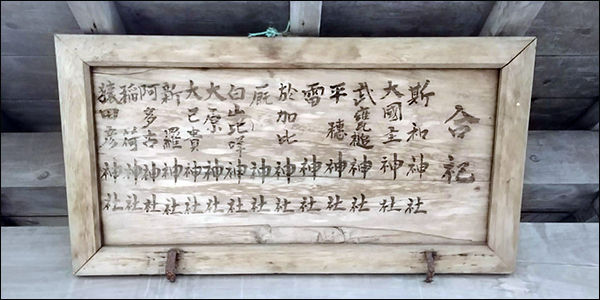 合祀
斯和神社
大國主神社
武甕槌神社
平穂神社
雷神社
於加比神社
厩神社
白山比咩神社
大原神社
大己貴神社
新羅神社
阿多古神社
稲荷神社
猿田彦神社